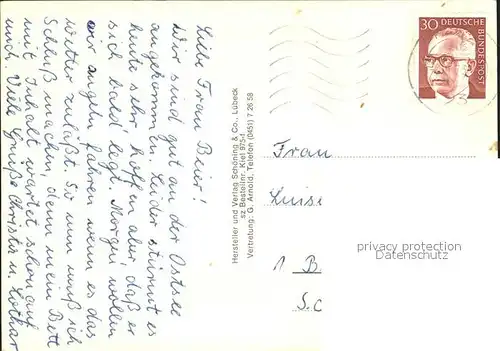 Liebe Frau Beier!
Wir sind gut an der Ostsee
angekommen. Leider stürmt es
heute sehr hoffen aber daß er
sich bald legt. Morgen wollen
wir angeln fahren wenn es das
Wetter zuläßt. So nun muß ich
Schluß machen, denn in mein Bett
mit Inhalt wartet schon auf
mich. Viele Grüße Christa u. Lothar
Hersteller und Verlag Schöning & Co., Lübeck
sz Bestellnr. Kiel 975-f
Vertretung: G. Arnold, Telefon (0451) 7 26 58
30 DEUTSCHE BUNDESPOST
Frau
Luise
1 B
S.C
privacy protection
AnsichtskartenVersand.com